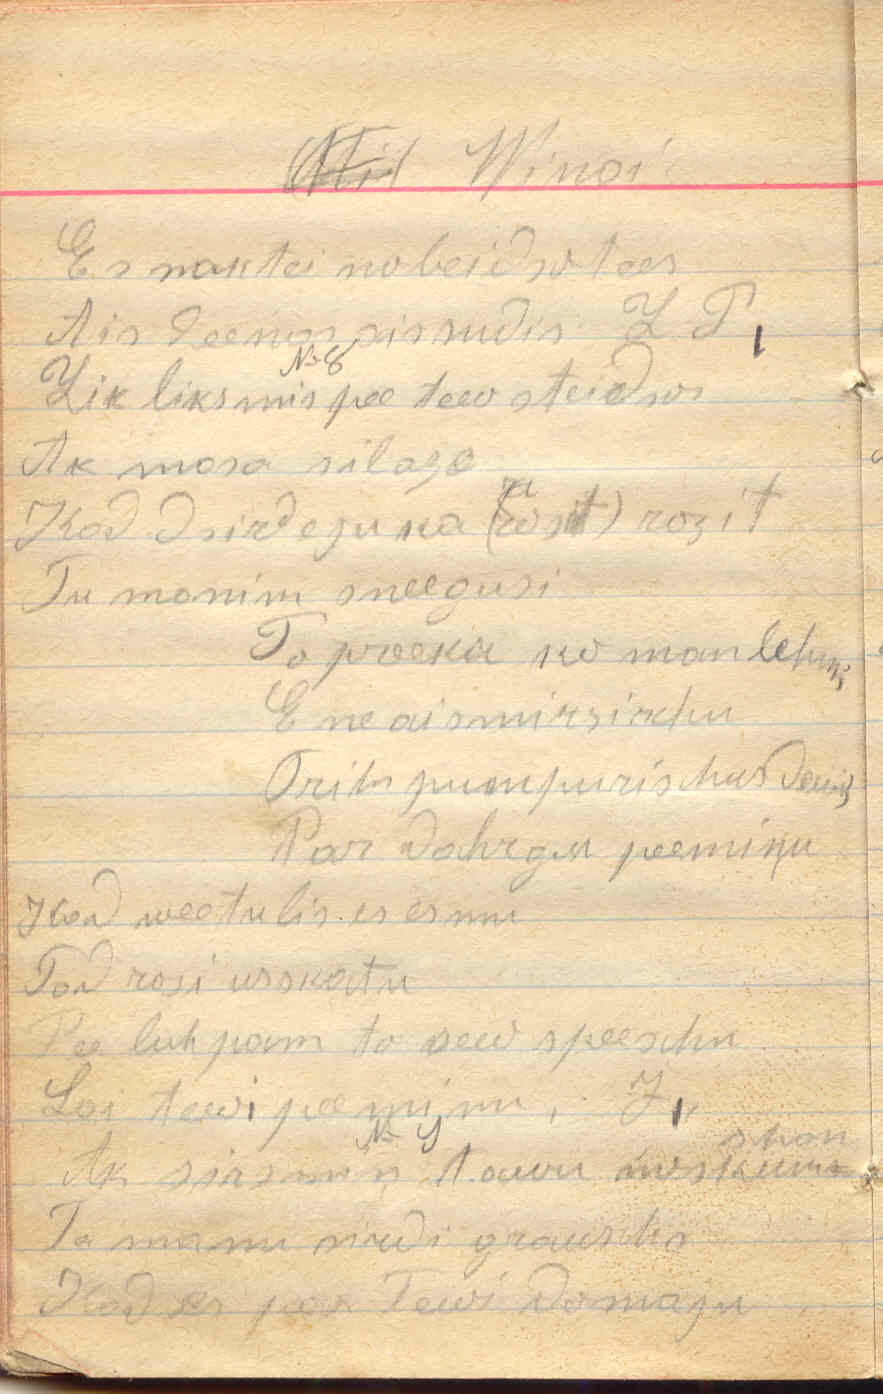 Winai
Es naktei nobeidsotees
Ais deenas aisrudis
№ 8
Lik liksmis pee tew steidsos
Ak masa silaze
Kad dsirdeju ka rozit
Tu manim sneegusi
To preeku ko man lehmi
E neaismirsirchu
Trihs pumpurischus dewi
Par dahrgu peemiņu
Kad weetulis es esmu
Tad rosi usskatu
Pee luhpam to sew speeschu
Lai tewi peeminu
№ 9
Ak sirsniņ tawu
schan
Ta manu sirdi grauschs
Kad es par Tewi domaju